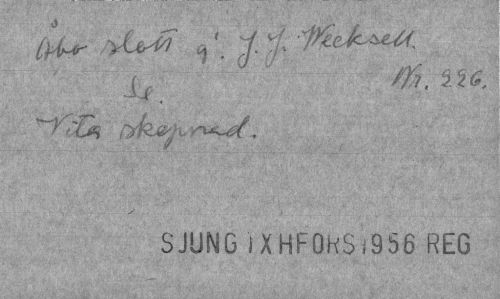 Åbo slott af J. J. Wecksell.
Nr. 226.
Se.
Vita skepnad.
SJUNG IX HFORS 1956 REG